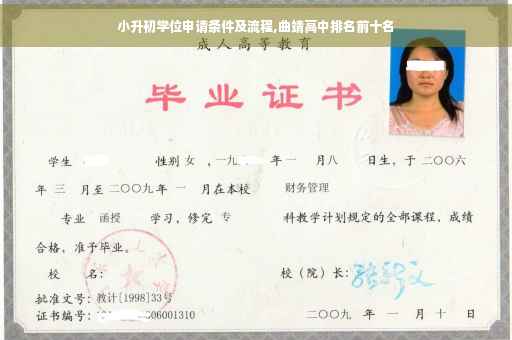 小升初学位申请条件及流程,曲靖高中排名前十名
成人高等教育
毕业证书
学生 性别 女 ,一九 年 一 月八 日生，于 二〇〇六
年 三 月至 二〇〇九 年 一 月在本校 财务管理
专业 函授 学习，修完 专 科教学计划规定的全部课程，成绩
合格，准予毕业。
校 名： 校（院）长：
批准文号：教计[1998]33号
证书编号： 06001310 二〇〇九 年 一 月 十 日